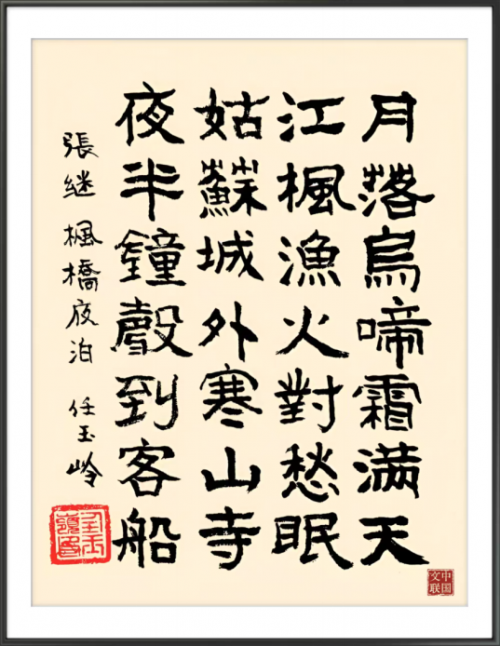 月落烏啼霜满天
江楓漁火對愁眠
姑蘇城外寒山寺
夜半鐘聲到客船
張继楓橋夜泊 任玉岭
任玉嶺印
中国文联